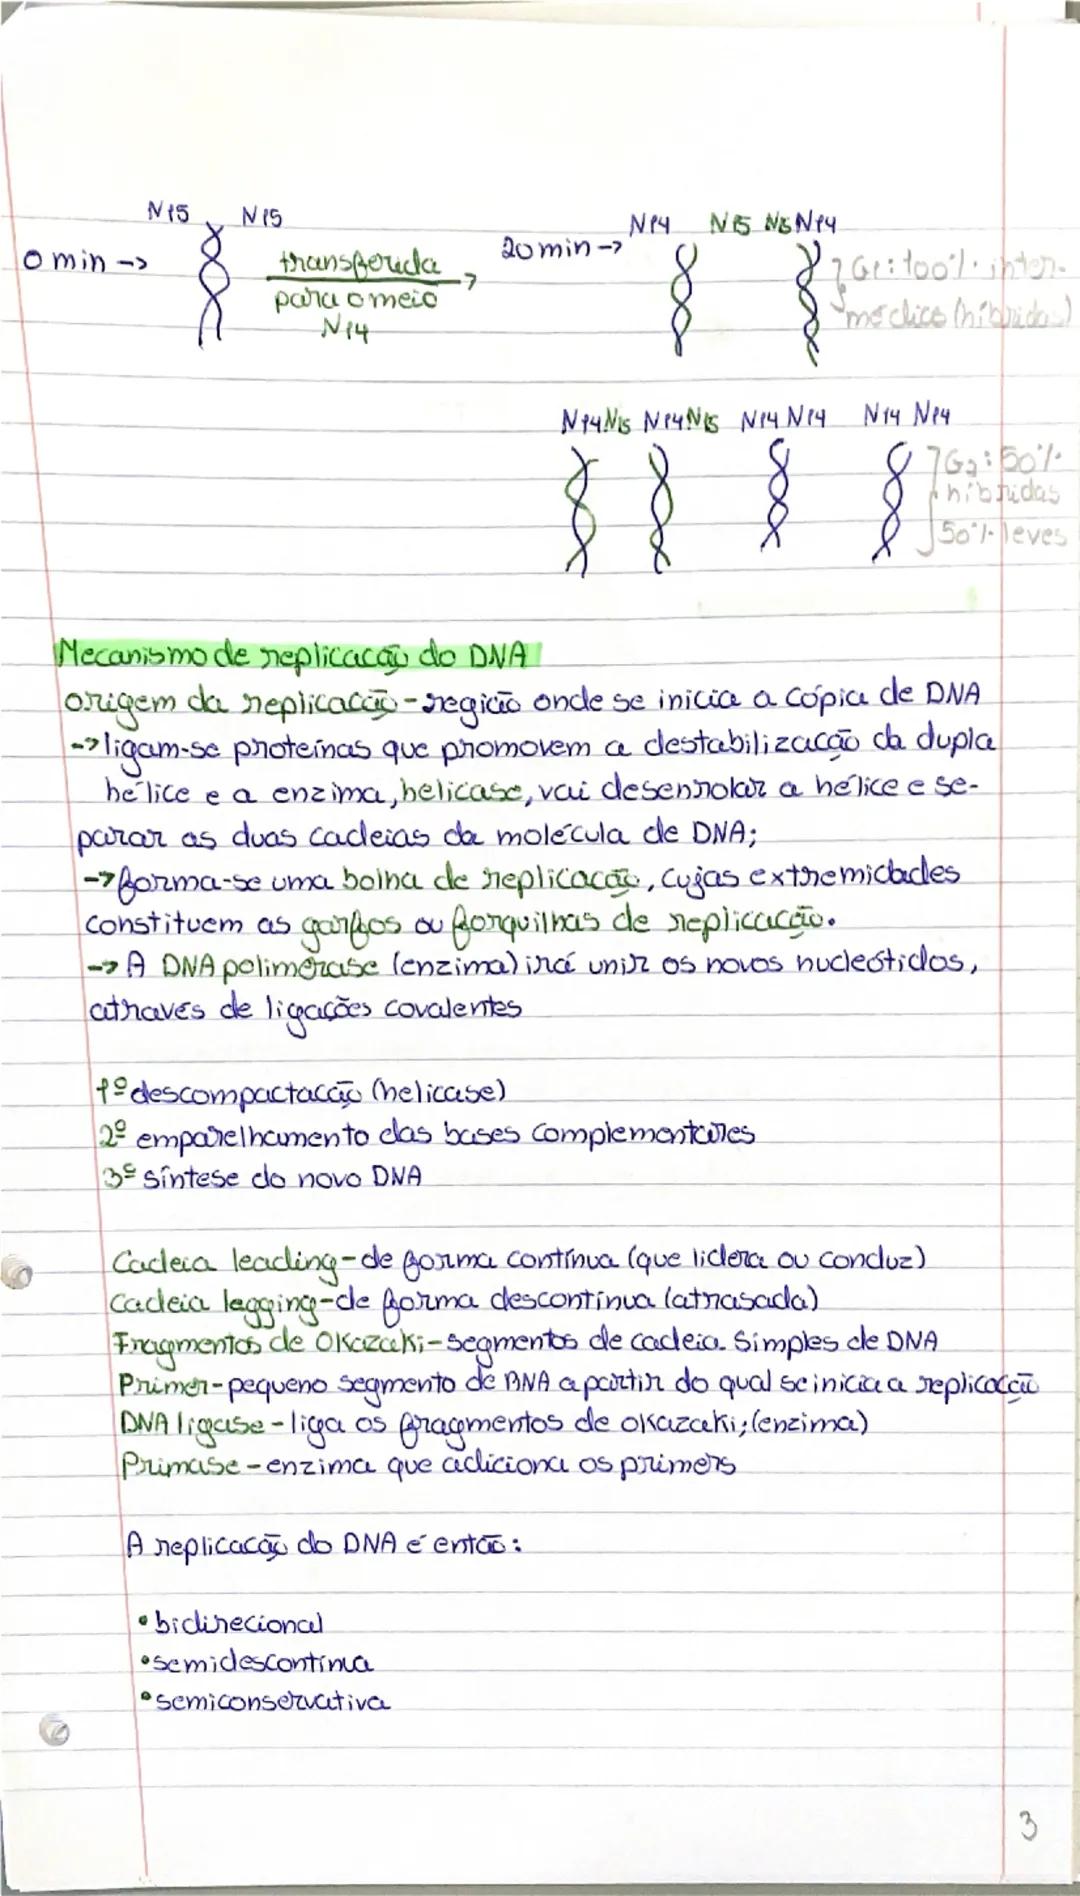 N15 N15
0 min -> transferida
para o meio
N14
20 min -> N14 N15 N15 N14
G1: 100% inter-
médios (híbridos)
N14 N15 N14 N15 N14 N14 N14 N14
G2: 50%
híbridas
50% leves
Mecanismo de replicação do DNA
origem da replicação - região onde se inicia a cópia de DNA
-> ligam-se proteínas que promovem a destabilização da dupla
hélice e a enzima, helicase, vai desenrolar a hélice e se-
parar as duas cadeias da molécula de DNA;
-> forma-se uma bolha de replicação, cujas extremidades
constituem as garfos ou forquilhas de replicação.
-> A DNA polimerase (enzima) irá unir os novos nucleótidos,
através de ligações covalentes
1º descompactação (helicase)
2º emparelhamento das bases complementares
3º síntese do novo DNA
Cadeia leading - de forma contínua (que lidera ou conduz)
Cadeia legging - de forma descontínua (atrasada)
Fragmentos de Okazaki - segmentos de cadeia simples de DNA
Primer - pequeno segmento de RNA a partir do qual se inicia a replicação
DNA ligase - liga os fragmentos de okazaki; (enzima)
Primase - enzima que adiciona os primers
A replicação do DNA é então:
• bidirecional
• semidescontínua
• semiconservativa
3